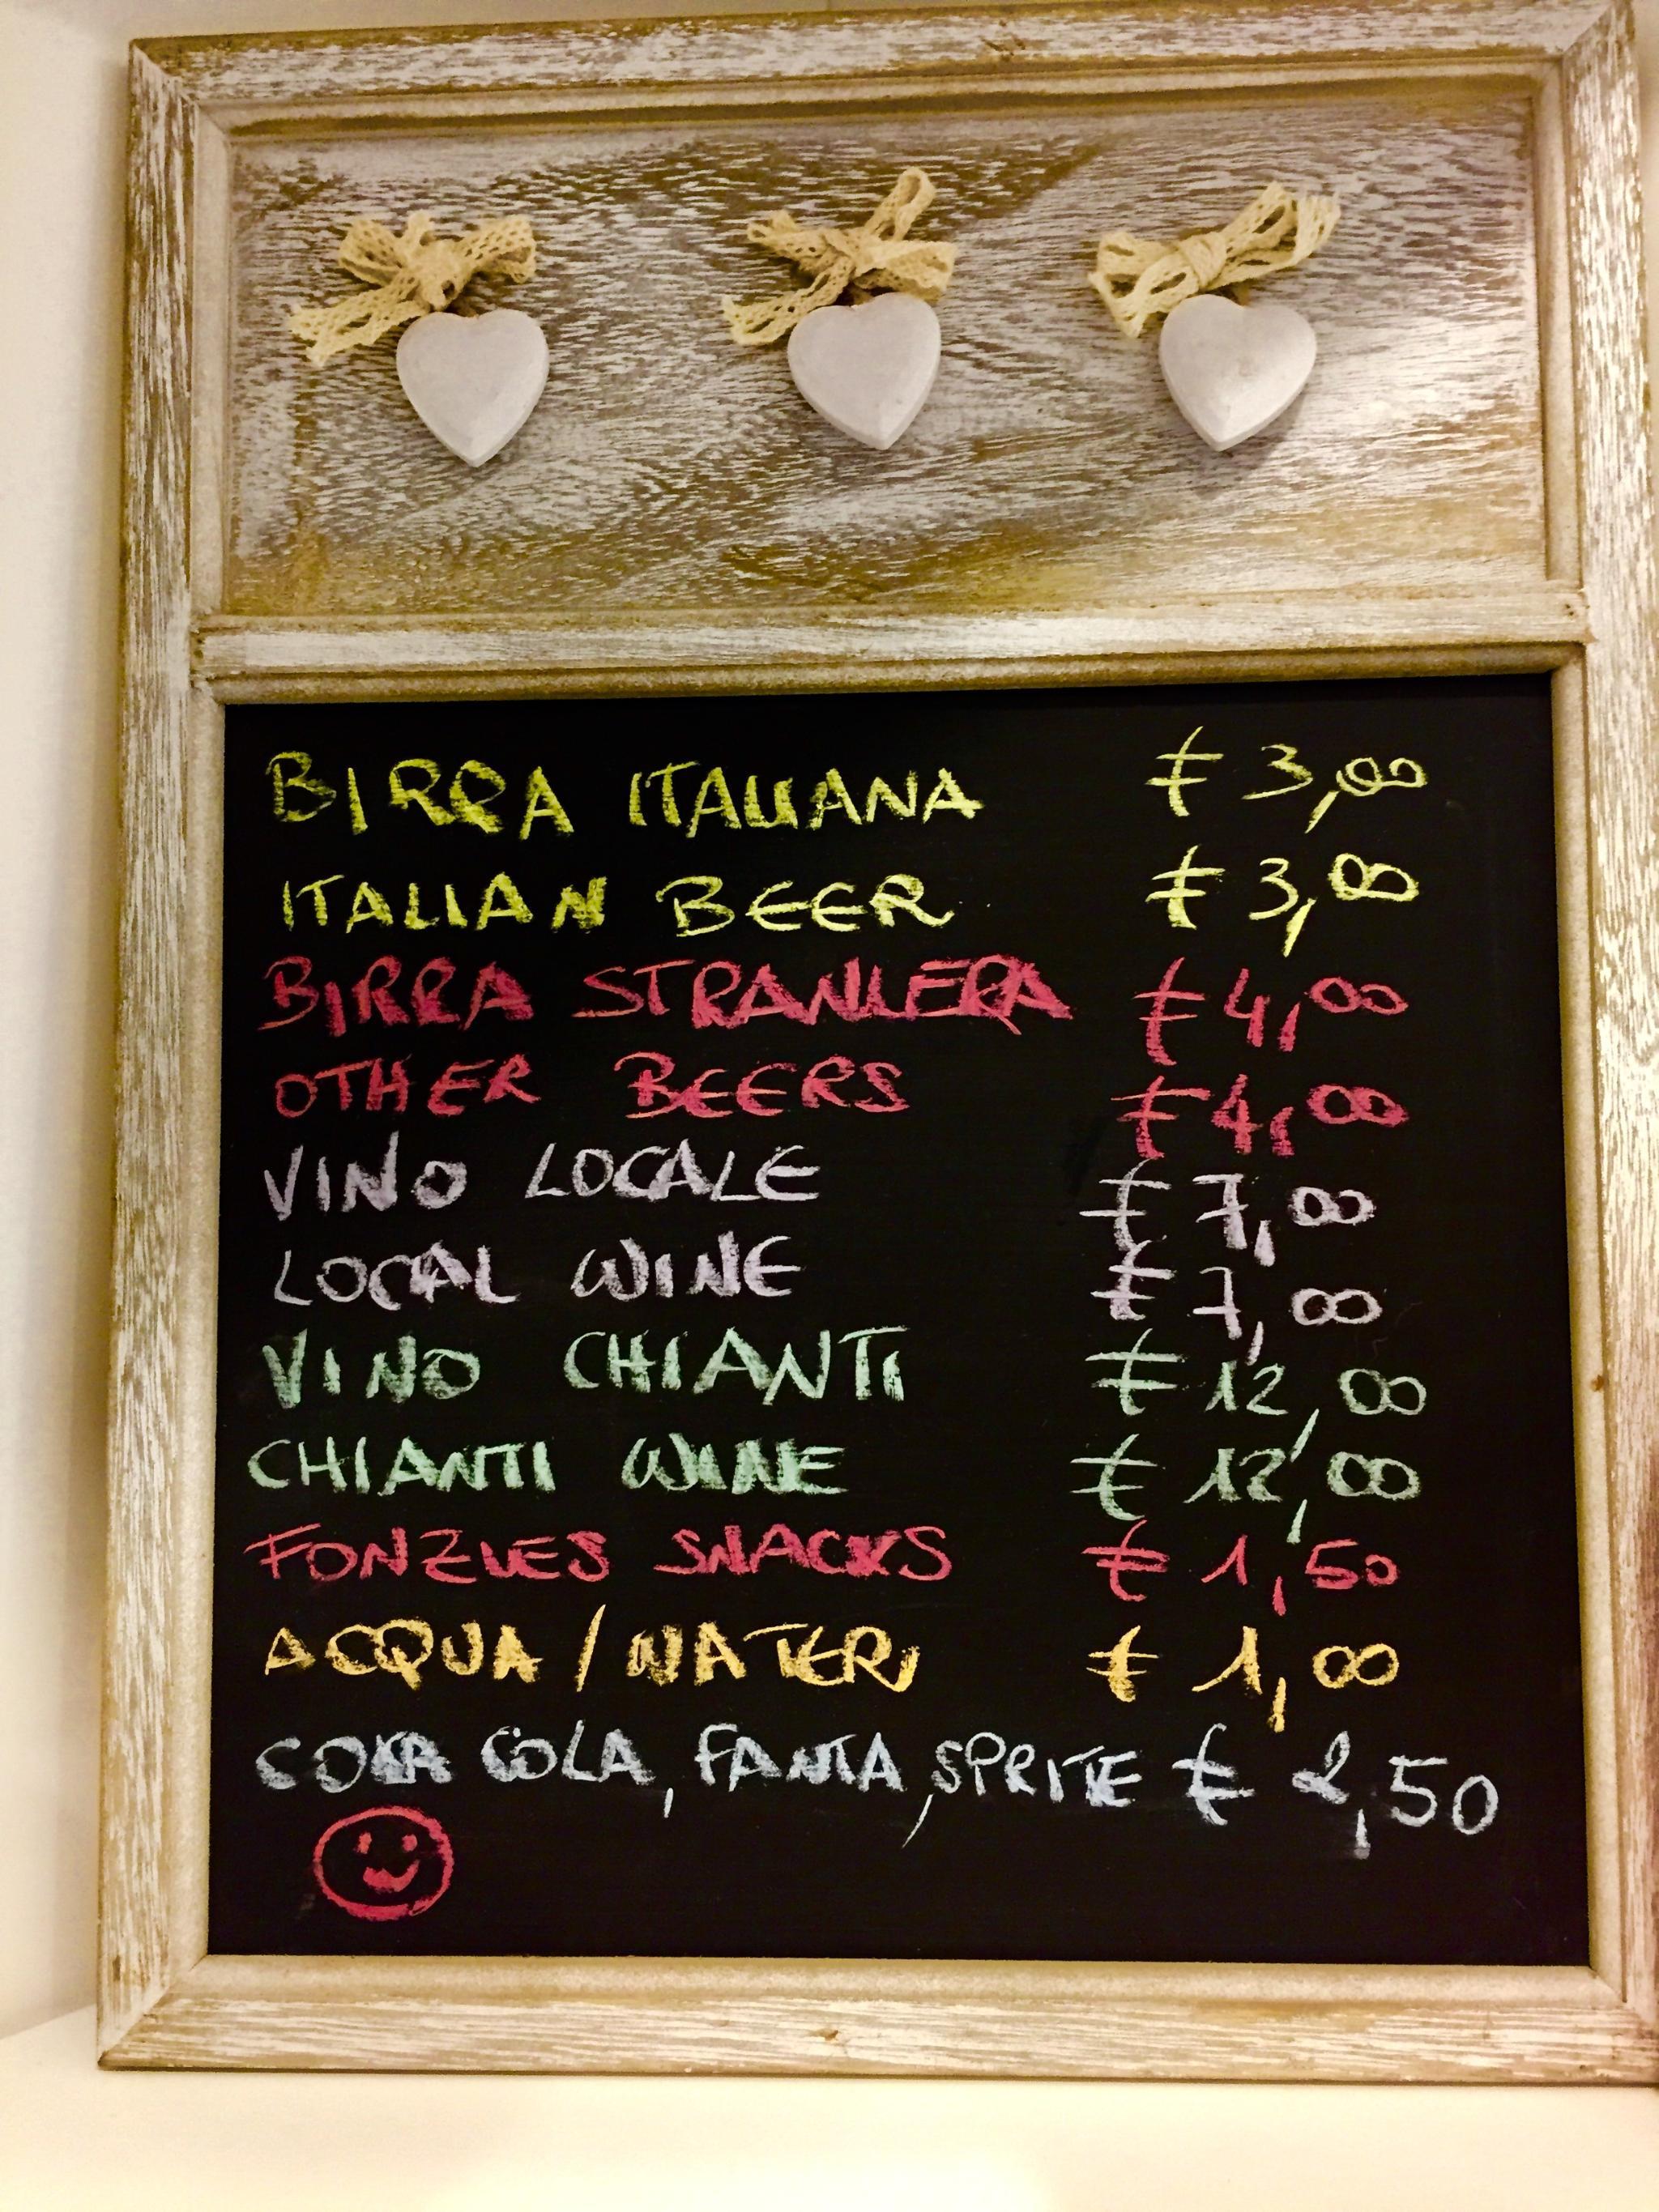 BIRRA ITALIANA € 3,00
ITALIAN BEER € 3,00
BIRRA STRANIERA € 4,00
OTHER BEERS € 4,00
VINO LOCALE € 7,00
LOCAL WINE € 7,00
VINO CHIANTI € 12,00
CHIANTI WINE € 12,00
FONZIES SNACKS € 1,50
ACQUA / WATER € 1,00
COKA COLA, FANTA, SPRITE € 2,50